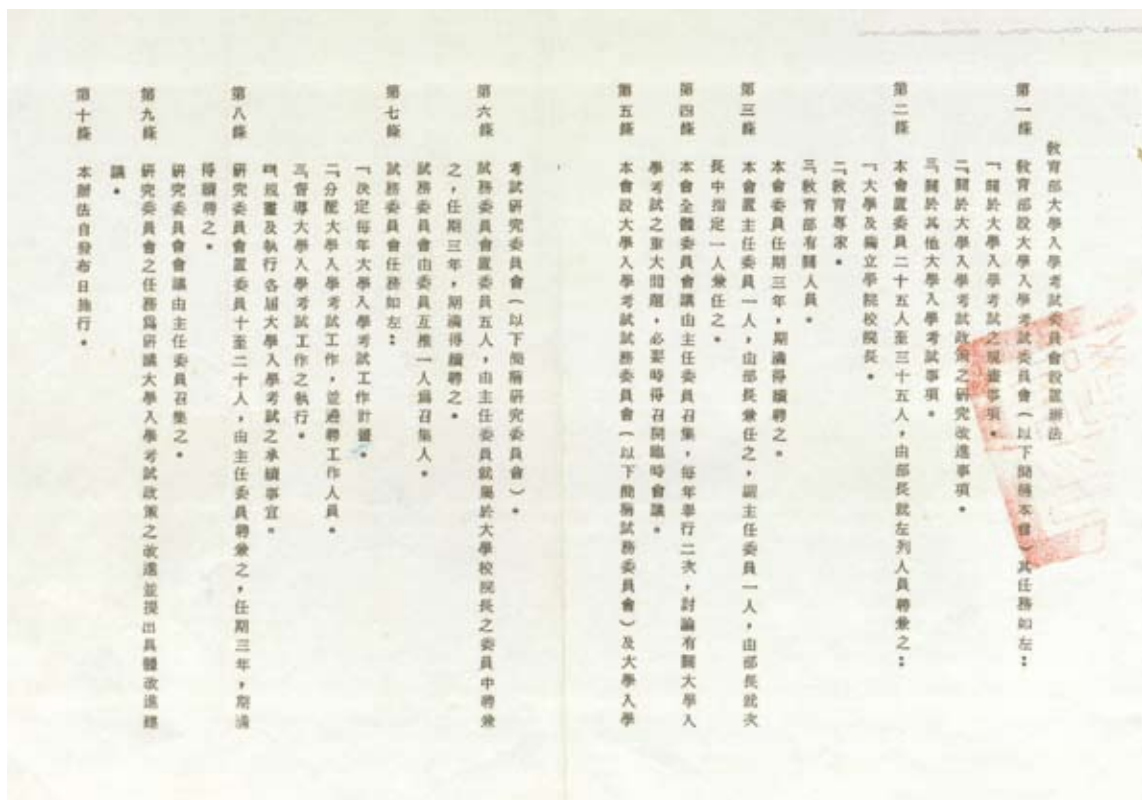 教育部大學入學考試委員會設置辦法
第一條　教育部設大學入學考試委員會（以下簡稱本會）其任務如左：
一、關於大學入學考試之規畫事項。
二、關於大學入學考試政策之研究改進事項。
三、關於其他大學入學考試事項。
第二條　本會置委員二十五人至三十五人，由部長就左列人員聘兼之：
一、大學及獨立學院校院長。
二、教育專家。
三、教育部有關人員。
本會委員任期三年，期滿得續聘之。
第三條　本會置主任委員一人，由部長兼任之，副主任委員一人，由部長就次
長中指定一人兼任之。
第四條　本會全體委員會議由主任委員召集，每年舉行二次，討論有關大學入
學考試之重大問題，必要時得召開臨時會議。
第五條　本會設大學入學考試試務委員會（以下簡稱試務委員會）及大學入學
考試研究委員會（以下簡稱研究委員會）。
第六條　試務委員會置委員五人，由主任委員就屬於大學校院長之委員中聘兼
之，任期三年，期滿得續聘之。
試務委員會由委員互推一人為召集人。
第七條　試務委員會任務如左：
一、決定每年大學入學考試工作計畫。
二、分配大學入學考試工作，並遴聘工作人員。
三、督導大學入學考試工作之執行。
四、規畫及執行各屆大學入學考試之承續事宜。
第八條　研究委員會置委員十至二十人，由主任委員聘兼之，任期三年，期滿
得續聘之。
研究委員會會議由主任委員召集之。
第九條　研究委員會之任務為研議大學入學考試政策之改進並提出具體改進建
議。
第十條　本辦法自發布日施行。